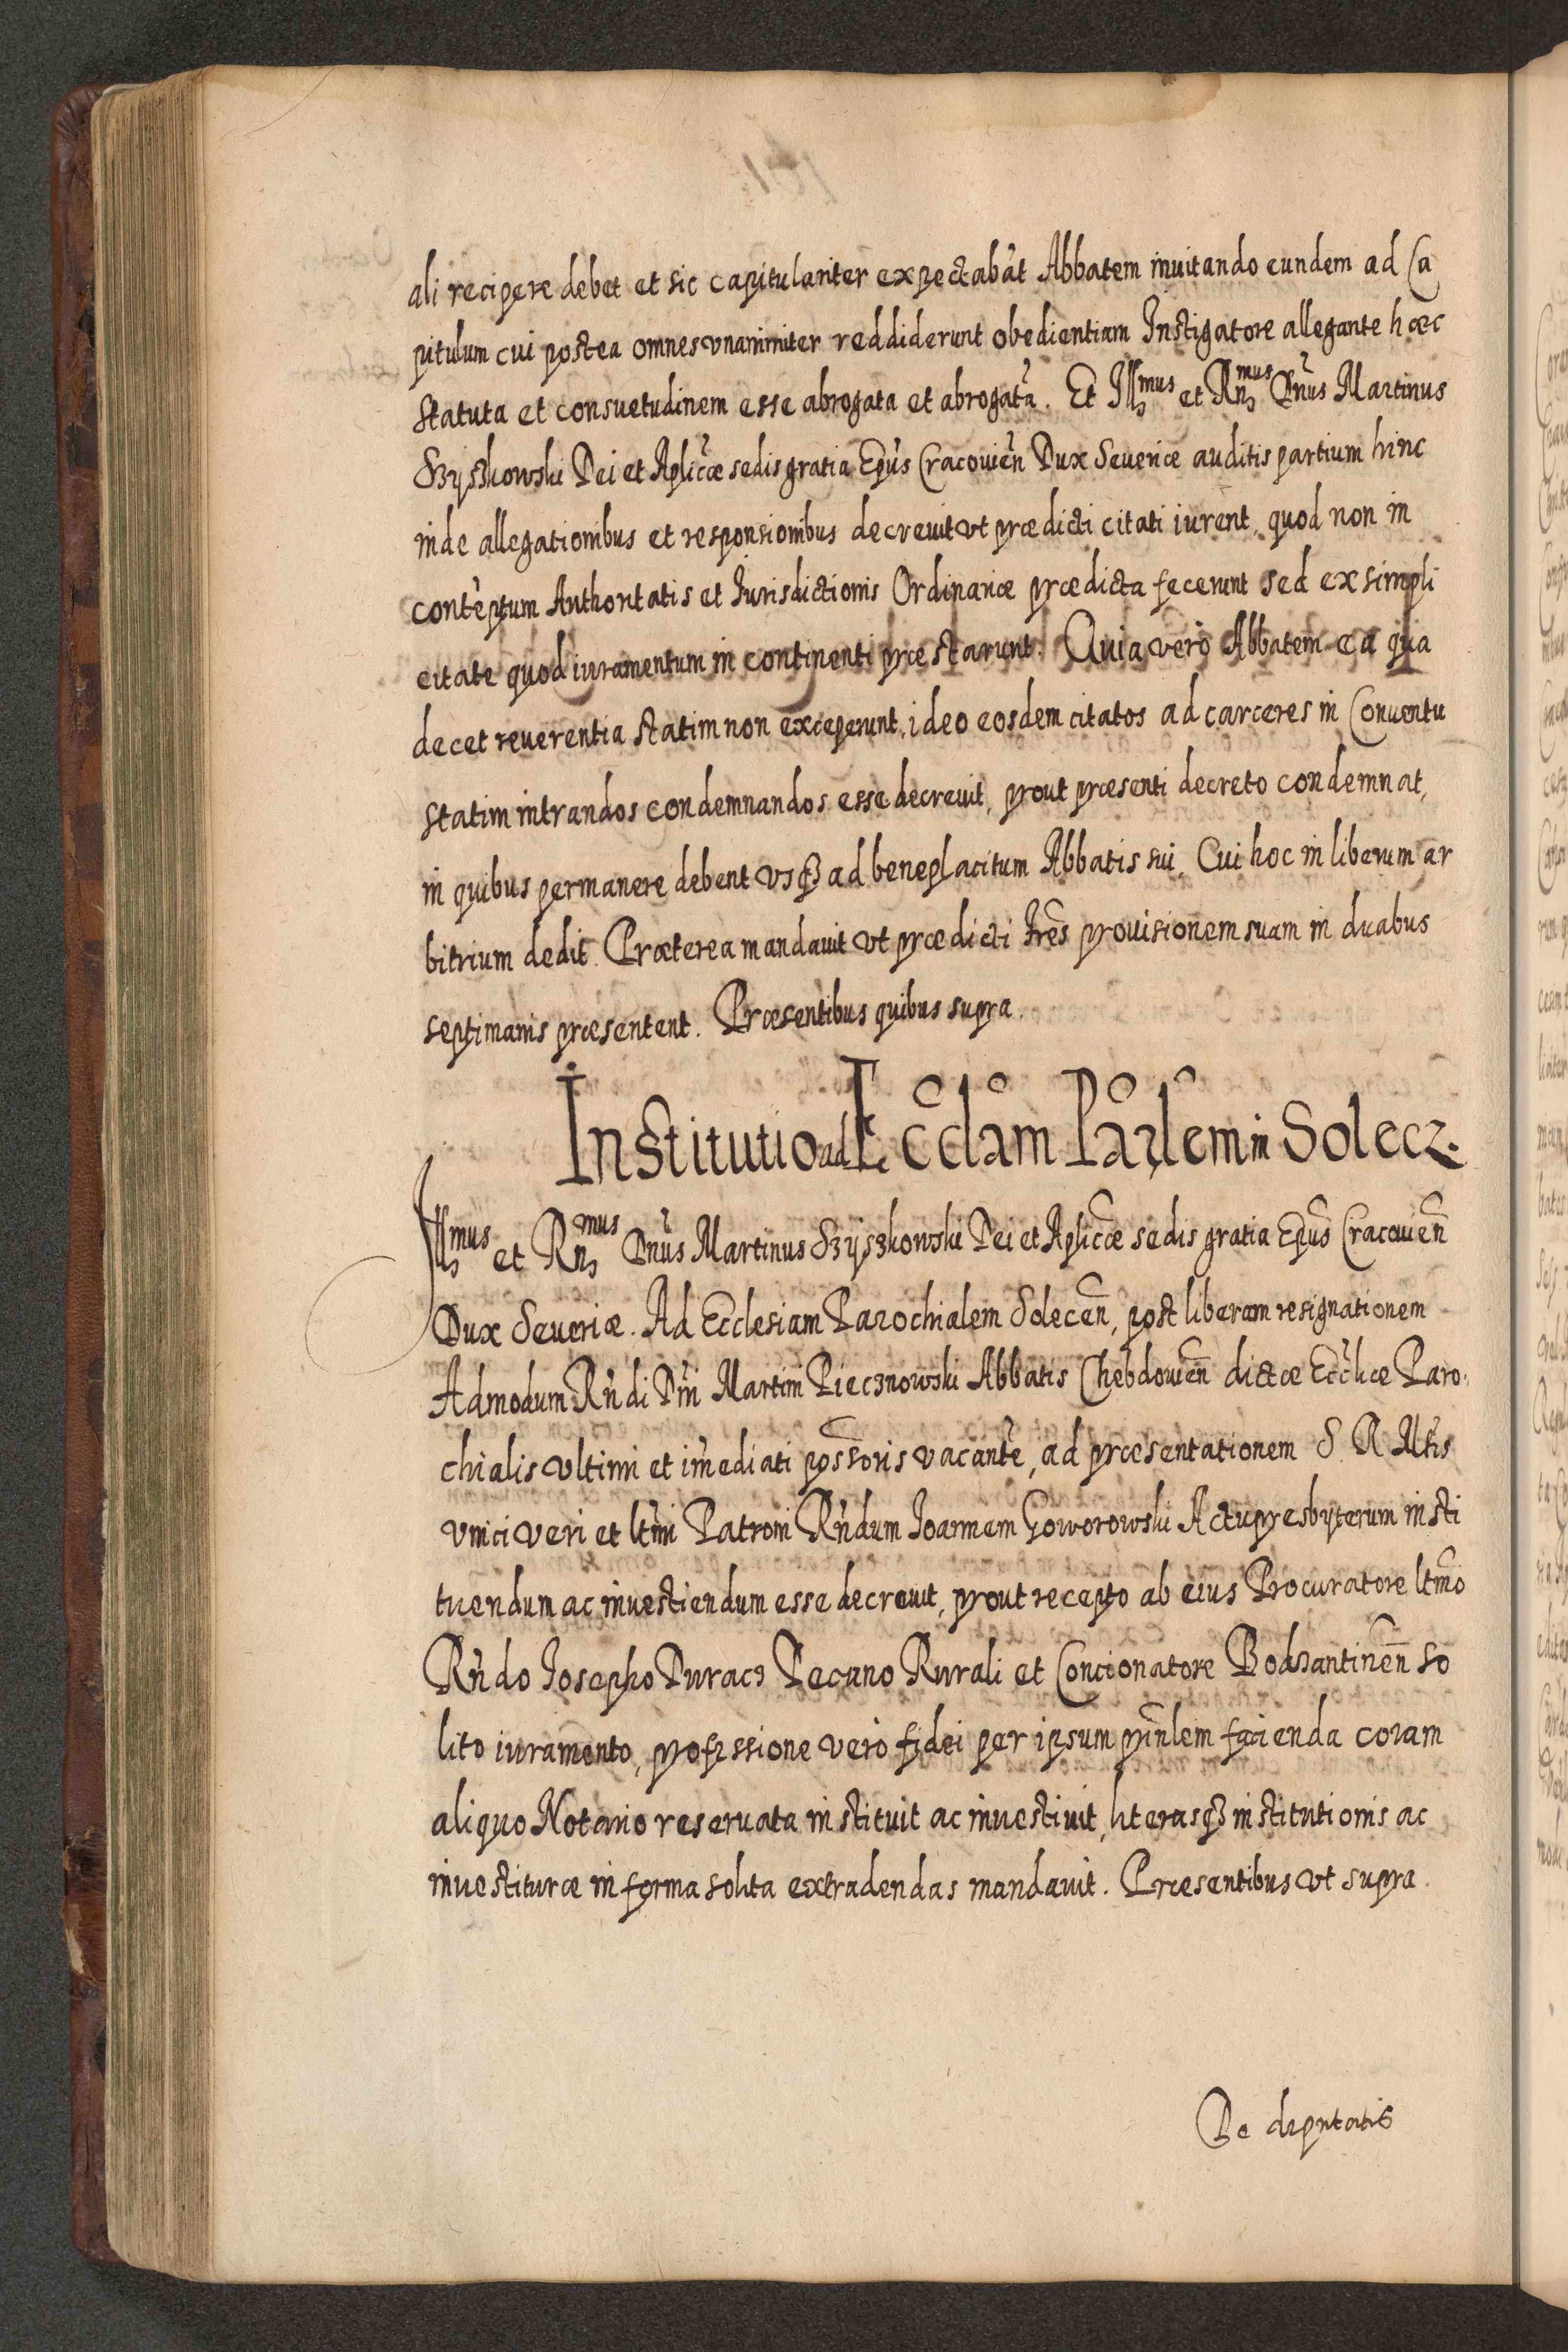 ali recipere debet et sic capitulariter expectabāt Abbatem inuitando eundem ad Ca
pitulum cui postea omnes vnanimiter reddiderunt obedientiam Instigatore allegante hæc
statuta et consuetudinem esse abrogata et abrogatā. Et Illmus et Rnmus Dn̄us Martinus
Szyszkowski Dei et Aplicæ sedis gratia Ep̄us Cracouien̄ Dux Seueriæ auditis partium hinc
inde allegationibus et responsionibus decreuit vt prædicti citati iurent, quod non in
contēptum Authoritatis et Iurisdictionis Ordinariæ prædicta fecerunt sed ex simpli
citate quod iuramentum in continenti præstarunt. Quia verò Abbatem ea qua
decet reuerentia statim non exceperunt, ideo eosdem citatos ad carceres in Conuentu
statim intrandos condemnandos esse decreuit, prout præsenti decreto condemnat,
in quibus permanere debent vsqꝫ ad beneplacitum Abbatis sui, Cui hoc in liberum ar
bitrium dedit. Præterea mandauit vt prædicti frēs prouisionem suam in duabus
septimanis præsentent. Præsentibus quibus supra.
Institutio ad Ecclām Parlem in Solecz.
Illmus et Rnmus Dn̄us Martinus Szyszkowski Dei et Aplicæ sedis gratia Ep̄us Cracouien̄
Dux Seueriæ. Ad Ecclesiam Parochialem Solecen̄, post liberam resignationem
Admodum Rn̄di Dn̄i Martini Piecznowski Abbatis Chebdouien̄ dictæ Eccl̄iæ Paro
chialis vltimi et im̄ediati possoris vacantē, ad præsentationem S. R. Mtis
vnici veri et ltm̄i Patroni Rn̄dum Ioannem Goworowski Actupresbyterum insti
tuendum ac inuestiendum esse decreuit, prout recepto ab eius Procuratore ltm̄o
Rn̄do Iosepho Duracz Decano Rurali et Concionatore Bodzantinen̄ so
lito iuramento, professione verò fidei per ipsum prin̄lem facienda coram
aliquo Notario reseruata instituit ac inuestiuit, literasqꝫ institutionis ac
inuestituræ in forma solita extradendas mandauit. Præsentibus vt supra.
De deputatis